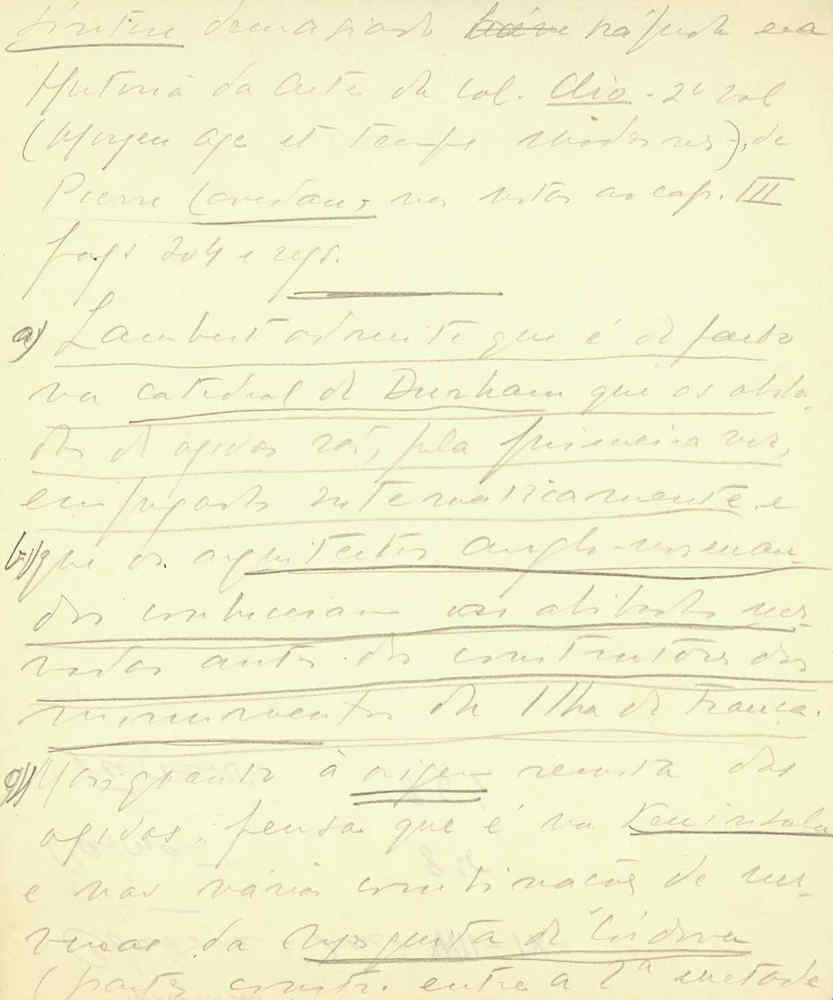 síntese demasiado rápida era
História da Arte da col. Clio - 2º vol
(Moyen age et Temps modernes), de
Pierre Lavedan, nas notas ao cap. III
pags 204 e segs.
a) Lambert admite que é de facto
na catedral de Durham que as abóba-
das de ogivas são, pela primeira vez,
empregadas sistematicamente e
b) que os arquitectos anglo-norman-
dos conheceram as abóbadas ner-
vadas antes dos construtores dos
monumentos da Ilha de França.
c) Mas quanto à origem remota das
ogivas, pensa que é na Península
e nas várias combinações de ner-
vuras da mesquita de Córdova
(partes constr. entre a 2ª metade